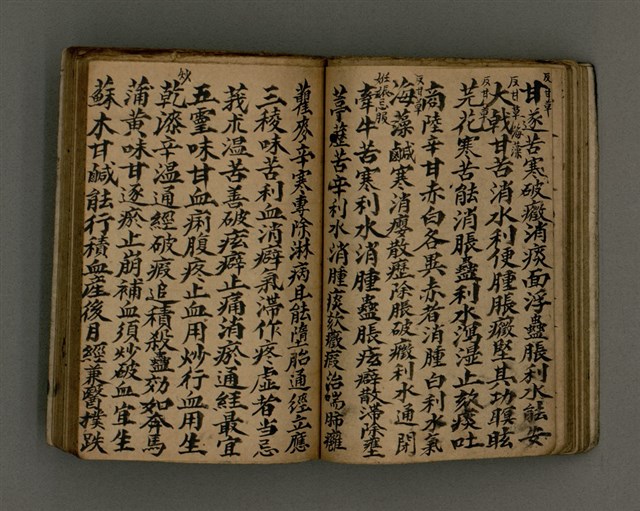 反甘草
甘遂苦寒破癥消痰面浮蠱脹利水能安
反甘草海藻
大戟甘苦消水利便腫脹癥堅其功瞑眩
反甘草
芫花寒苦能消脹蠱利水瀉湿止欬痰吐
商陸辛甘赤白各異赤者消腫白利水氣
反草
海藻鹹寒消癭散癧除脹破癥利水通閉
妊娠忌服
牽牛苦寒利水消腫蠱脹痃癖散滯除壅
葶藶苦辛利水消腫痰欬癥瘕治喘肺癰
瞿麥辛寒專除淋病且能墮胎通經立應
三稜味苦利血消癖氣滯作疼虛者當忌
莪朮温苦善破痃癖止痛消瘀通經最宜
五靈味甘血痢腹疼止血用炒行血用生
炒
乾漆辛温通經破瘕追積殺蟲効如奔馬
蒲黃味甘逐瘀止崩補血須炒破血宜生
蘇木甘鹹能行積血產後月經兼醫撲跌